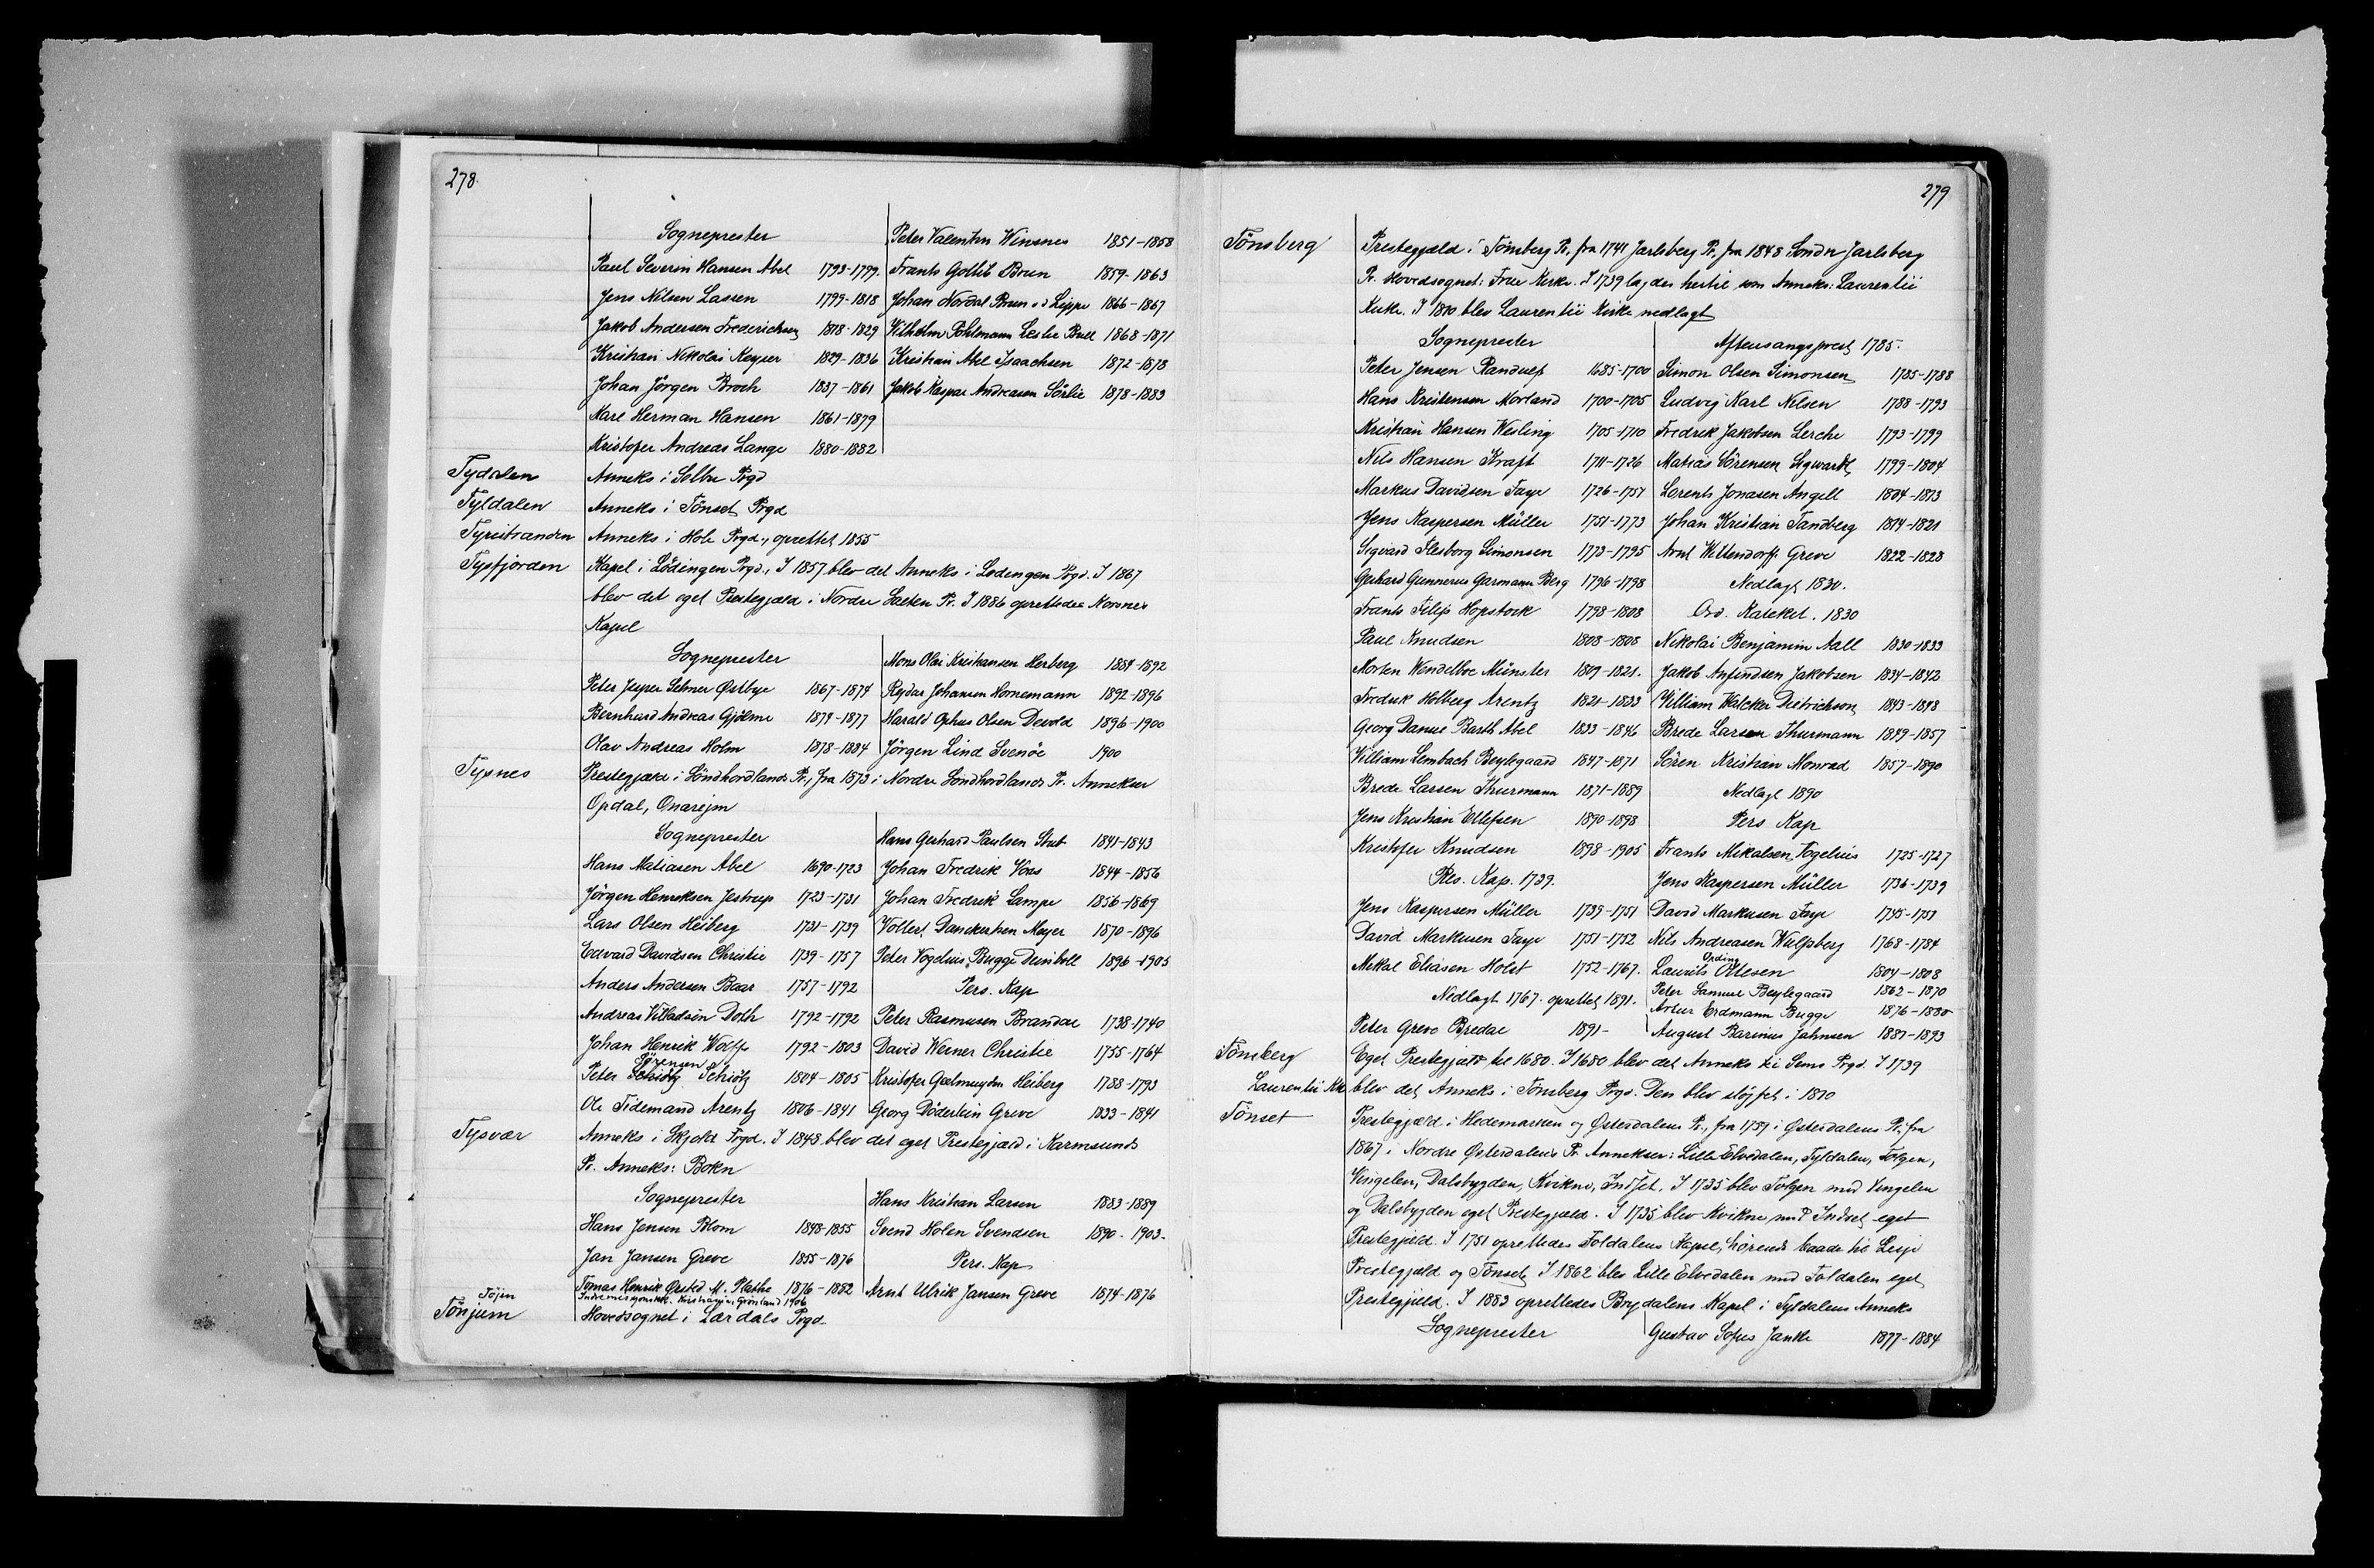 278.
Sogneprester
Paul Severin Hansen Abel 1793-1799.
Jens Nilsen Lassen 1799-1818
Jakob Andersen Frederichsen 1818-1829
Kristian Nikolai Keyser 1829-1836
Johan Jörgen Broch 1837-1861
Karl Herman Hansen 1861-1879
Kristofer Andreas Lange 1880-1882
Peter Valentin Winsnes 1851-1858
Frants Gottlib Brun 1859-1863
Johan Nordal Brun v d Lippe 1866-1867
Vilhelm Pohlmann Leslie Bull 1868-1871
Kristian Abel Isaachsen 1872-1878
Jakob Kaspar Andreasen Sörlie 1878-1883
Tydalen Anneks i Selbu Prgd
Tyldalen Anneks i Tönset Prgd
Tyristranden Anneks i Hole Prgd., oprettet 1855
Tysfjorden Kapel i Lödingen Prgd., I 1857 blev det Anneks i Lödingen Prgd. I 1867
blev det eget Prestegjæld i Nordre Salten Pr. I 1886 oprettedes Korsnes
Kapel
Sogneprester
Peter Jesper Selmer Østbye 1867-1874
Bernhard Andreas Gjölme 1874-1877
Olav Andreas Holm 1878-1884
Mons Olai Kristiansen Herberg 1884-1892
Reydar Johansen Hornemann 1892-1896
Harald Ophus Olsen Devold 1896-1900
Jörgen Lind Svenöe 1900
Tysnes Prestegjæld i Söndhordlands Pr., fra 1873 i Nordre Söndhordlands Pr. Annekser
Opdal, Onarejm
Sogneprester
Hans Matiasen Abel 1690-1723
Jörgen Henriksen Jestrup 1723-1731
Lars Olsen Heiberg 1731-1739
Edvard Davidsen Christie 1739-1757
Anders Andersen Baar 1757-1792
Andreas Villadsön Doth 1792-1792
Johan Henrik Wolff 1792-1803
Sörensen
Peter Schiötz Schiötz 1804-1805
Ole Tidemand Arentz 1806-1841
Hans Gerhard Paulsen Stub 1841-1843
Johan Fredrik Voss 1844-1856
Johan Fredrik Lampe 1856-1869
Vollert Danckertsen Meyer 1870-1896
Peter Vogelius Bugge Deinboll 1896-1905
Pers. Kap
Peter Rasmusen Brandal 1738-1740
David Werner Christie 1755-1764
Kristofer Geelmuyden Heiberg 1788-1793
Georg Döderlein Greve 1833-1841
Tysvær Anneks i Skjold Prgd. I 1848 blev det eget Prestegjæld i Karmsunds
Pr. Anneks: Bokn
Sogneprester
Hans Jensen Blom 1848-1855
Jan Jansen Greve 1855-1876
Tomas Henrik Ørsted M. Plathe 1876-1882
Hans Kristian Larsen 1883-1889
Svend Holen Svendsen 1890-1903-
Pers. Kap
Arnt Ulrik Jansen Greve 1874-1876
Töjen Kristiania, Grönland 1906
Tönjum Hovedsognet i Lærdals Prgd.
279
Tönsberg Prestegjæld i Tönsberg Pr., fra 1741 Jarlsberg Pr., fra 1848 Söndre Jarlsberg
Pr. Hovedsognet: Frue Kirke. I 1739 lagdes hertil som Anneks: Laurentii
Kirke. I 1810 blev Laurentii Kirke nedlagt
Sogneprester
Peter Jensen Randulf 1685-1700
Hans Kristensen Morland 1700-1705
Kristian Hansen Wesling 1705-1710
Nils Hansen Kraft 1711-1726
Markus Davidsen Faye 1726-1751
Jens Kaspersen Müller 1751-1773
Sigvard Flesborg Simonsen 1773-1795
Gerhard Gunnerus Garmann Berg 1796-1798
Frants Filip Hopstock 1798-1808
Paul Knudsen 1808-1808
Morten Wendelboe Münster 1809-1821.
Fredrik Holberg Arentz 1821-1833
Georg Daniel Barth Abel 1833-1846
William Lembach Beylegaard 1847-1871
Brede Larsen Thurmann 1871-1889
Jens Kristian Ellefsen 1890-1898
Kristofer Knudsen 1898-1905
Res. Kap. 1739.
Jens Kaspersen Müller 1739-1751
David Markusen Faye 1751-1752
Mikal Eliasen Holst 1752-1767.
Nedlagt 1767. oprettet 1891.
Peter Greve Bredal 1891-
Aftensangsprest 1785.
Simon Olsen Simonsen 1785-1788
Ludvig Karl Nilsen 1788-1793
Fredrik Jakobsen Lerche 1793-1799
Matias Sörensen Sigwardt 1799-1804
Lorents Jonasen Angell 1804-1813
Johan Kristian Tandberg 1814-1821
Arnt Wittendorff Greve 1822-1828
Nedlagt 1830.
Ord. Kateket. 1830
Nikolai Benjamin Aall 1830-1833
Jakob Anfindsen Jakobsen 1834-1842
William Walcker Dietrichson 1843-1848
Brede Larsen Thurmann 1849-1857
Sören Kristian Monrad 1857-1890
Nedlagt 1890
Pers Kap
Frants Mikalsen Vogelius 1725-1727
Jens Kaspersen Müller 1736-1739
David Markusen Faye 1745-1751
Nils Andreasen Wulfsberg 1768-1784
Oding
Laurits Ottesen 1804-1808
Peter Samuel Beylegaard 1862-1870
Artur Erdmann Bugge 1876-1880
August Barinius Jahnsen 1887-1893
Tönsberg Eget Prestegjæld til 1680. I 1680 blev det Anneks til Sems Prgd. I 1739
Laurentii Krk blev det Anneks i Tönsberg Prgd. Den blev slöjfet i 1810
Tönset Prestegjæld i Hedemarken og Østerdalens Pr., fra 1751 i Østerdalens Pr., fra
1867 i Nordre Østerdalens Pr. Annekser: Lille Elvedalen, Tyldalen, Tolgen,
Vingelen, Dalsbygden, Kvikne, Indset. I 1735 blev Tolgen med Vingelen
og Dalsbygden eget Prestegjæld. I 1735 blev Kvikne med Indset eget
Prestegjæld. I 1751 oprettedes Foldalens Kapel, hörende baade til Lesje
Prestegjæld og Tönset. I 1862 blev Lille Elvedalen med Foldalen eget
Prestegjæld. I 1883 oprettedes Brydalens Kapel i Tyldalens Anneks
Sogneprester Gustav Sofus Janke 1877-1884